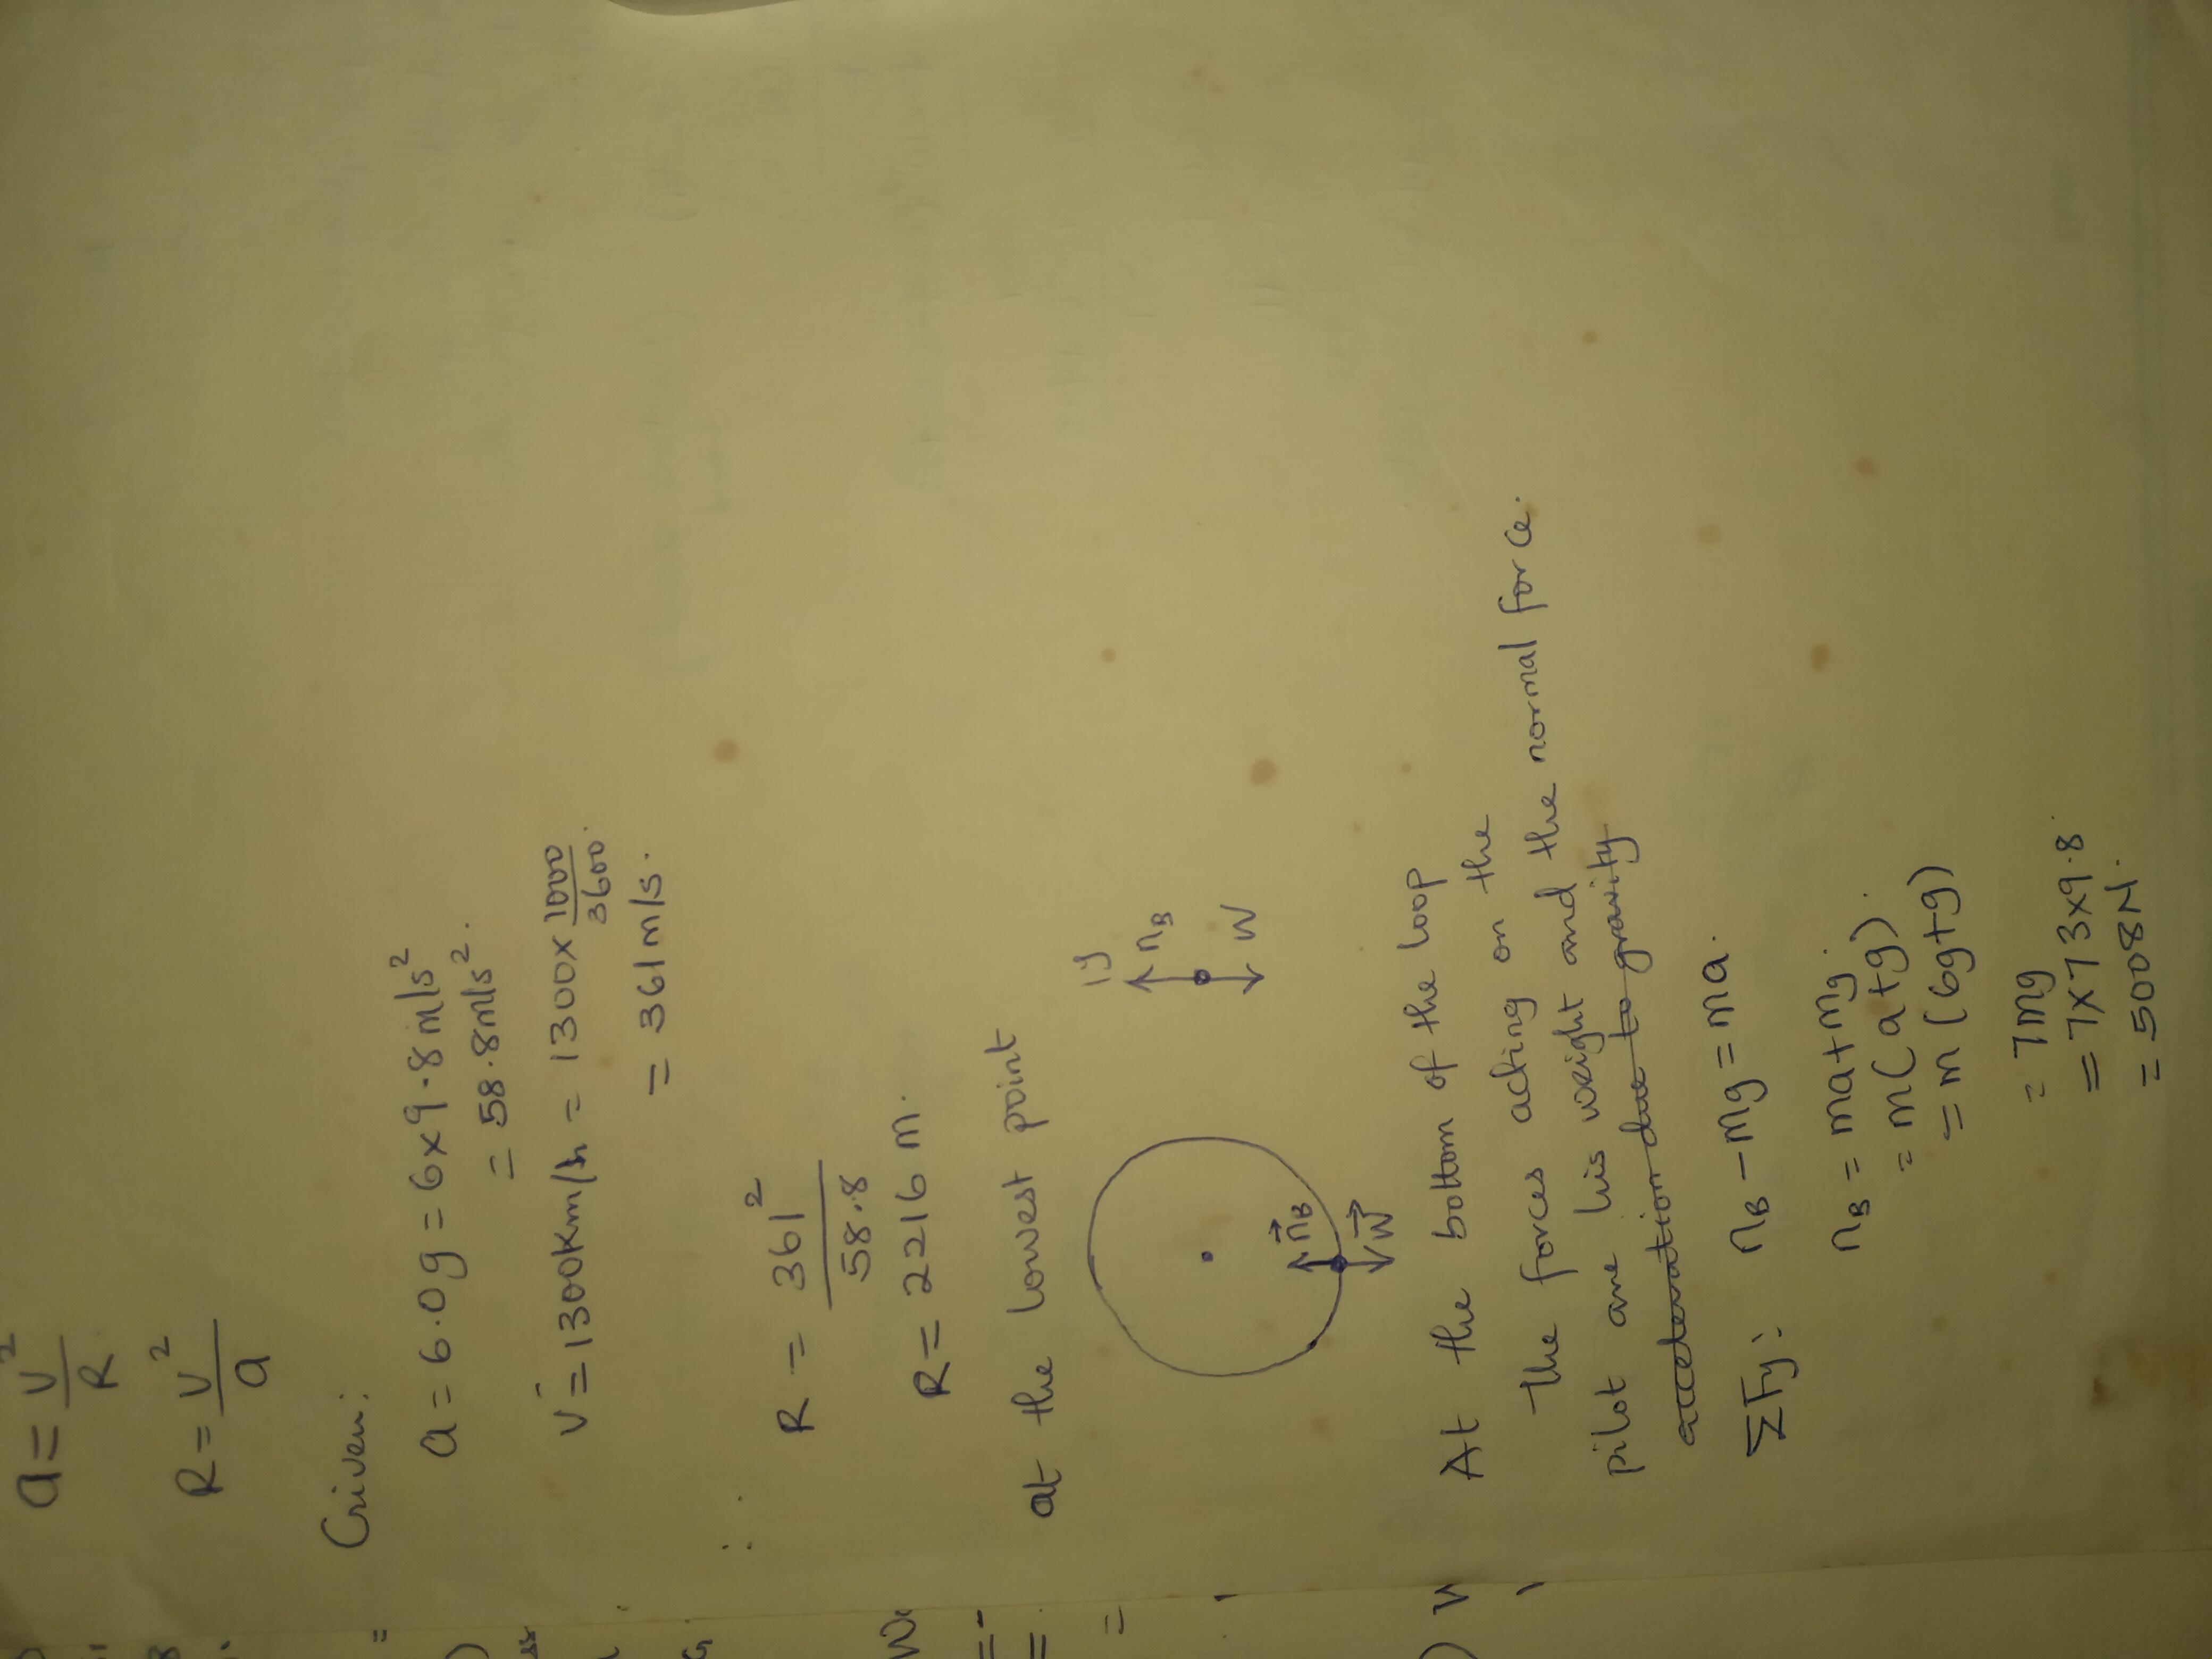 a = v²/R
R = v²/a
Given:
a = 6.0g = 6×9.8 m/s²
= 58.8 m/s².
v = 1300 Km/h = 1300 × 1000/3600.
= 361 m/s.
∴ R = 361²/58.8
R = 2216 m.
at the lowest point
n⃗B
W⃗
y
nB
W
At the bottom of the loop
the forces acting on the
pilot are his weight and the normal force.
acceleration due to gravity
ΣFy: nB − mg = ma.
nB = ma + mg.
= m(a+g).
= m(6g+g)
= 7mg
= 7×73×9.8.
= 5008 N.